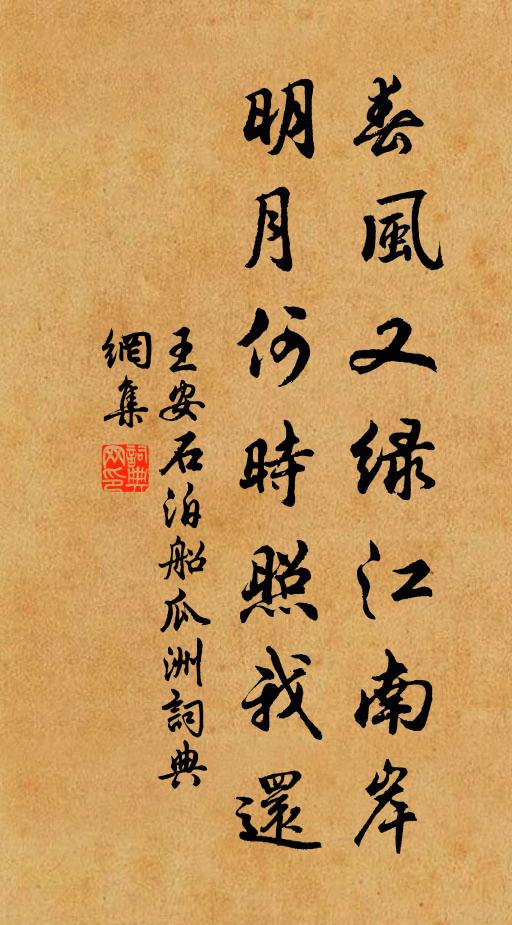 春風又綠江南岸
明月何時照我還
王安石泊船瓜洲詞典
網集
詞典
网印